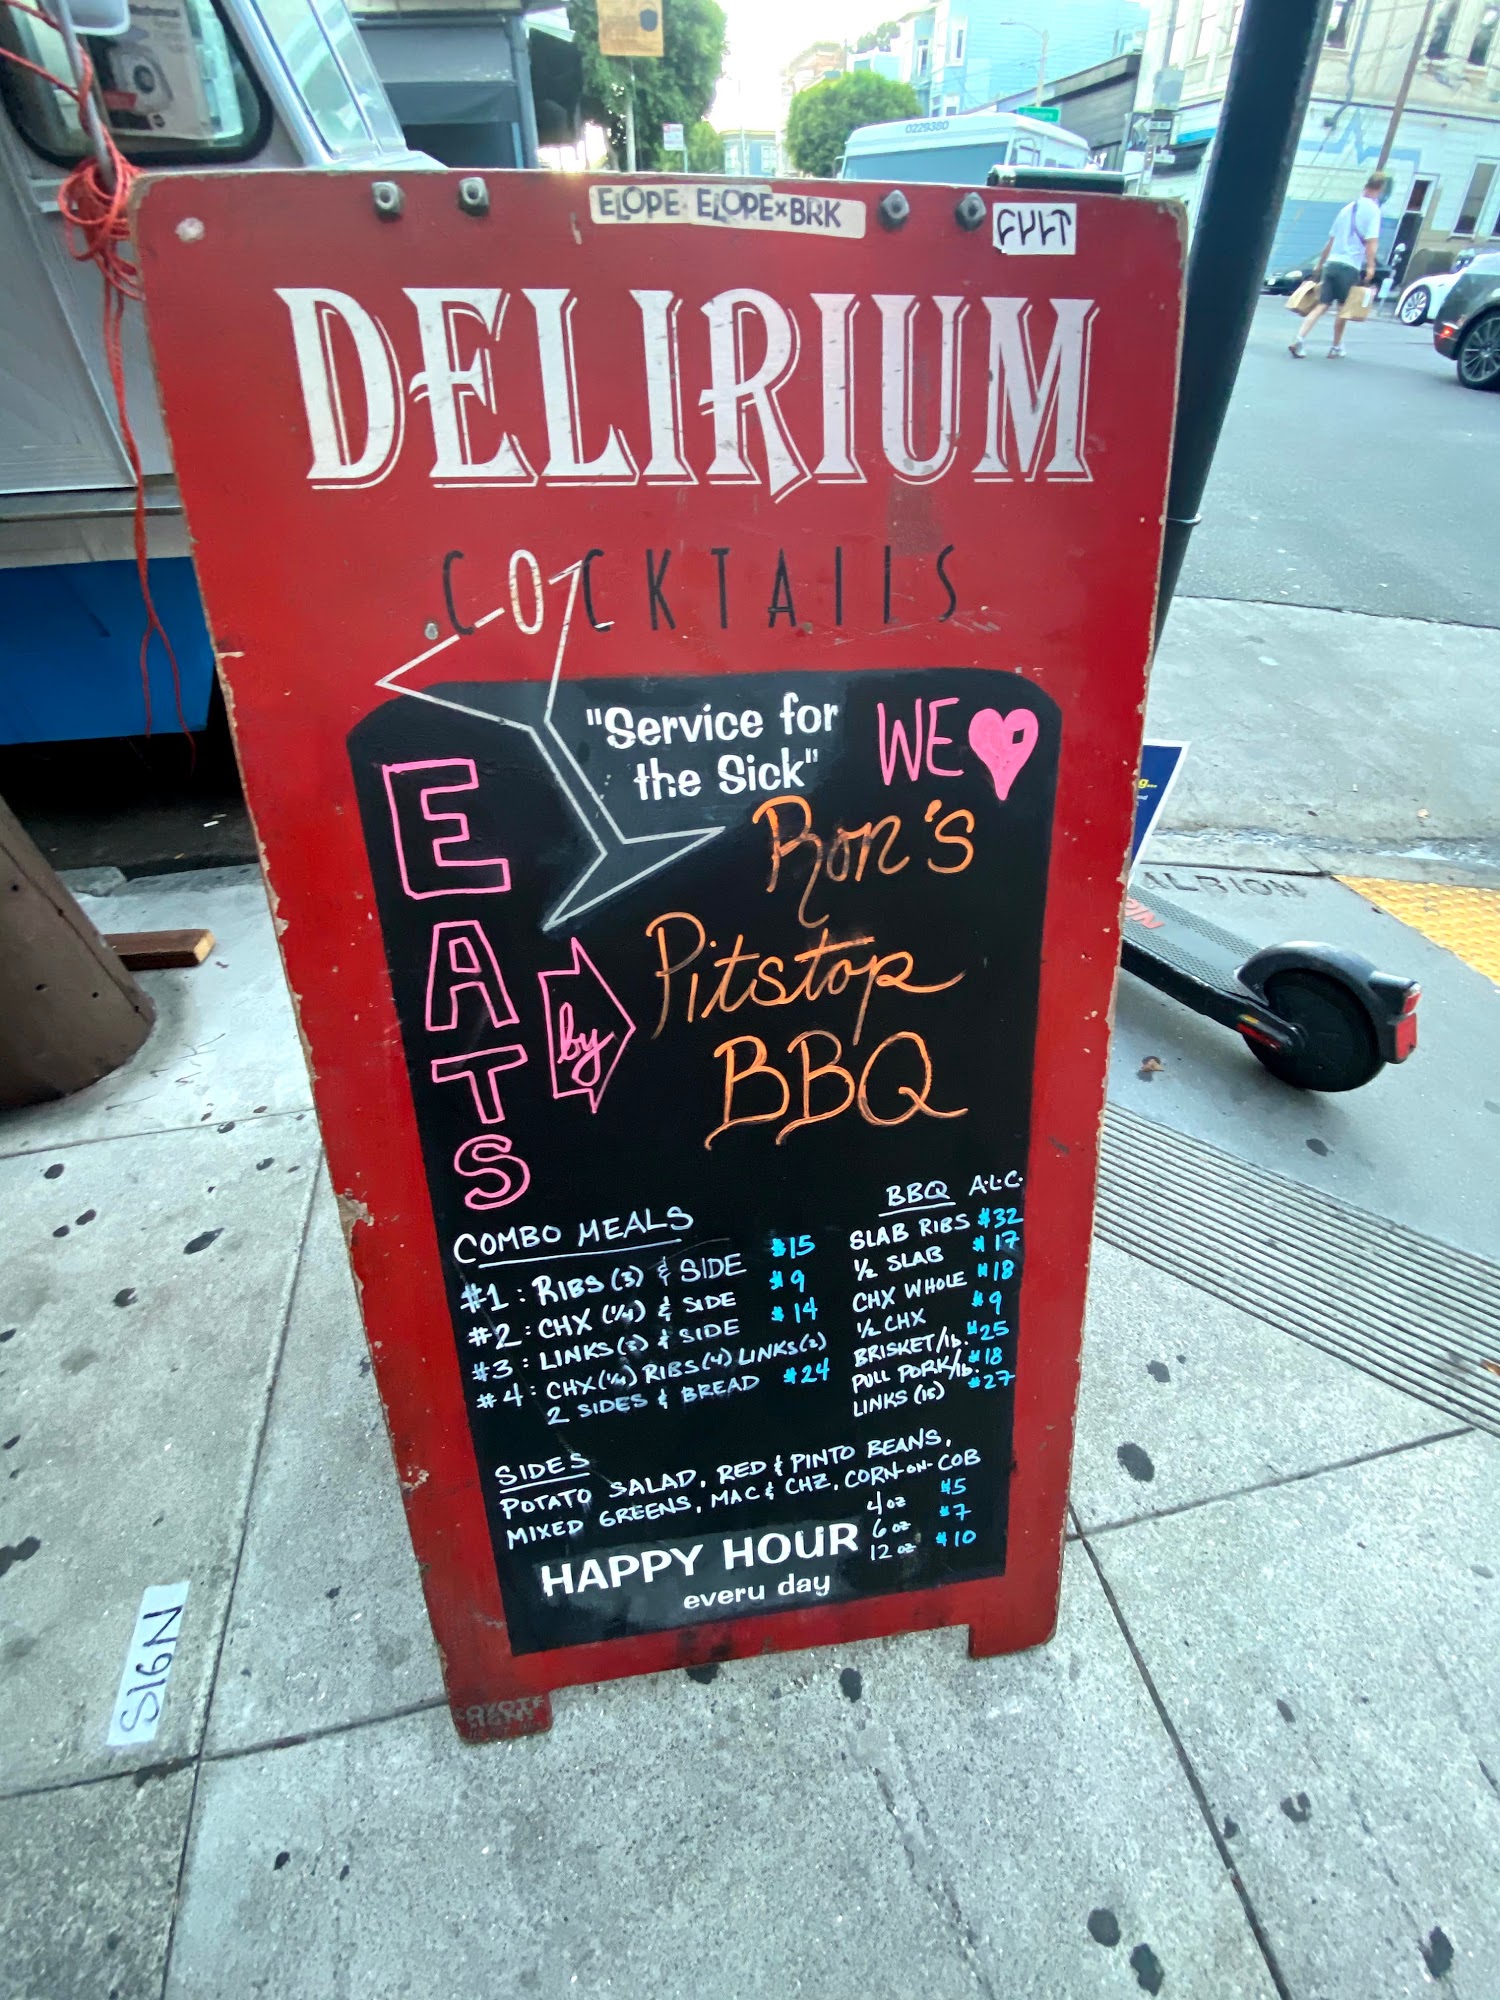 0229380
ELOPE ELOPE×BRK
CVLT
DELIRIUM
COCKTAILS
"Service for
the Sick"
WE
Ron's
Pitstop
BBQ
EATS
by
COMBO MEALS
#1: RIBS (3) & SIDE $15
#2: CHX (1/4) & SIDE $9
#3: LINKS (3) & SIDE $14
#4: CHX (1/4) RIBS (4) LINKS (2)
2 SIDES & BREAD $24
BBQ A.L.C.
SLAB RIBS $32
1/2 SLAB $17
CHX WHOLE $18
1/2 CHX $9
BRISKET/lb. $25
PULL PORK/lb. $18
LINKS (15) $27
SIDES
POTATO SALAD, RED & PINTO BEANS,
MIXED GREENS, MAC & CHZ, CORN-ON-COB
4oz $5
6oz $7
12oz $10
HAPPY HOUR
everu day
SIGN
ALBION